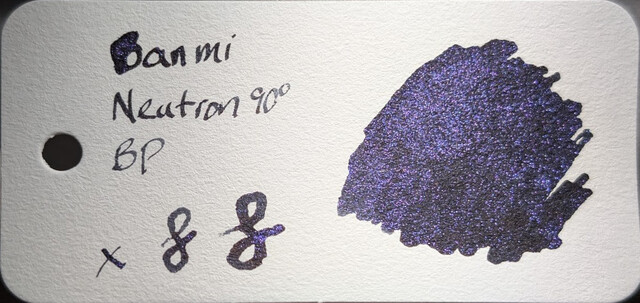 Banmi
Neutron 90°
BP
x 8 8